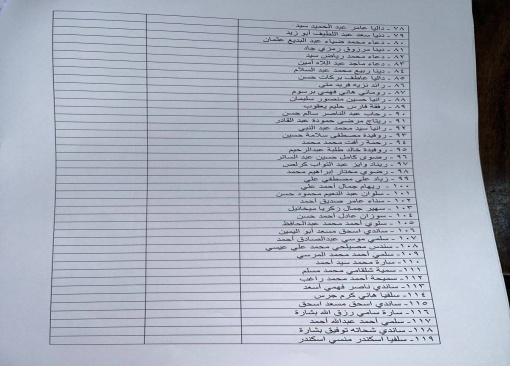 ٧٨ - داليا عامر عبد الحميد سيد
٧٩ - دنيا سعد عبد اللطيف أبو زيد
٨٠ - دعاء محمد ضياء عبد البديع عثمان
٨١ - دينا مرزوق رمزي جاد
٨٢ - دعاء محمد رياض سيد
٨٣ - دعاء ماجد عبد اللاه أمين
٨٤ - دينا ربيع محمد عبد السلام
٨٥ - داليا عاطف بركات حسن
٨٦ - رائد نزيه فريد متي
٨٧ - روماني هاني فهمي برسوم
٨٨ - رانيا حسين منصور سليمان
٨٩ - رفقة فارس حليم يعقوب
٩٠ - رحاب عبد الناصر سالم حسن
٩١ - ريتاج مرضي حمودة عبد القادر
٩٢ - رانيا سيد محمد عبد النبي
٩٣ - روفيدة مصطفى سلامة حسين
٩٤ - رحمة رأفت محمد محمد
٩٥ - روفيدة خالد طلبة عبدالرحيم
٩٦ - رضوى كامل حسين عبد الساتر
٩٧ - ريناد وايز عبد التواب
٩٨ - رضوي مختار إبراهيم محمد
٩٩ - زياد علي مصطفي علي
١٠٠ - ريهام جمال أحمد علي
١٠١ - سلوان عبد النعيم محمود حسن
١٠٢ - سناء عامر صديق أحمد
١٠٣ - سهير جمال زكريا ميخائيل
١٠٤ - سوزان عادل أحمد حسن
١٠٥ - سلوي أحمد محمد عبدالحافظ
١٠٦ - ساندي اسحق مسعد أبو اليمين
١٠٧ - سلمي موسي عبدالصادق أحمد
١٠٨ - سندس مصيلحي محمد علي عيسي
١٠٩ - سلمي أحمد محمد المرسي
١١٠ - سارة محمد سيد أحمد
١١١ - سمية شلقامي محمد مسلم
١١٢ - سميحة أحمد محمد راغب
١١٣ - ساندي ناصر فهمي أسعد
١١٤ - سلفيا هاني كرم جرس
١١٥ - ساندي اسحق مسعد اسحق
١١٦ - سارة سامي رزق الله بشارة
١١٧ - سلمي أحمد عبدالله أحمد
١١٨ - ساندي شحاته توفيق بشارة
١١٩ - سلفيا اسكندر منسي اسكندر